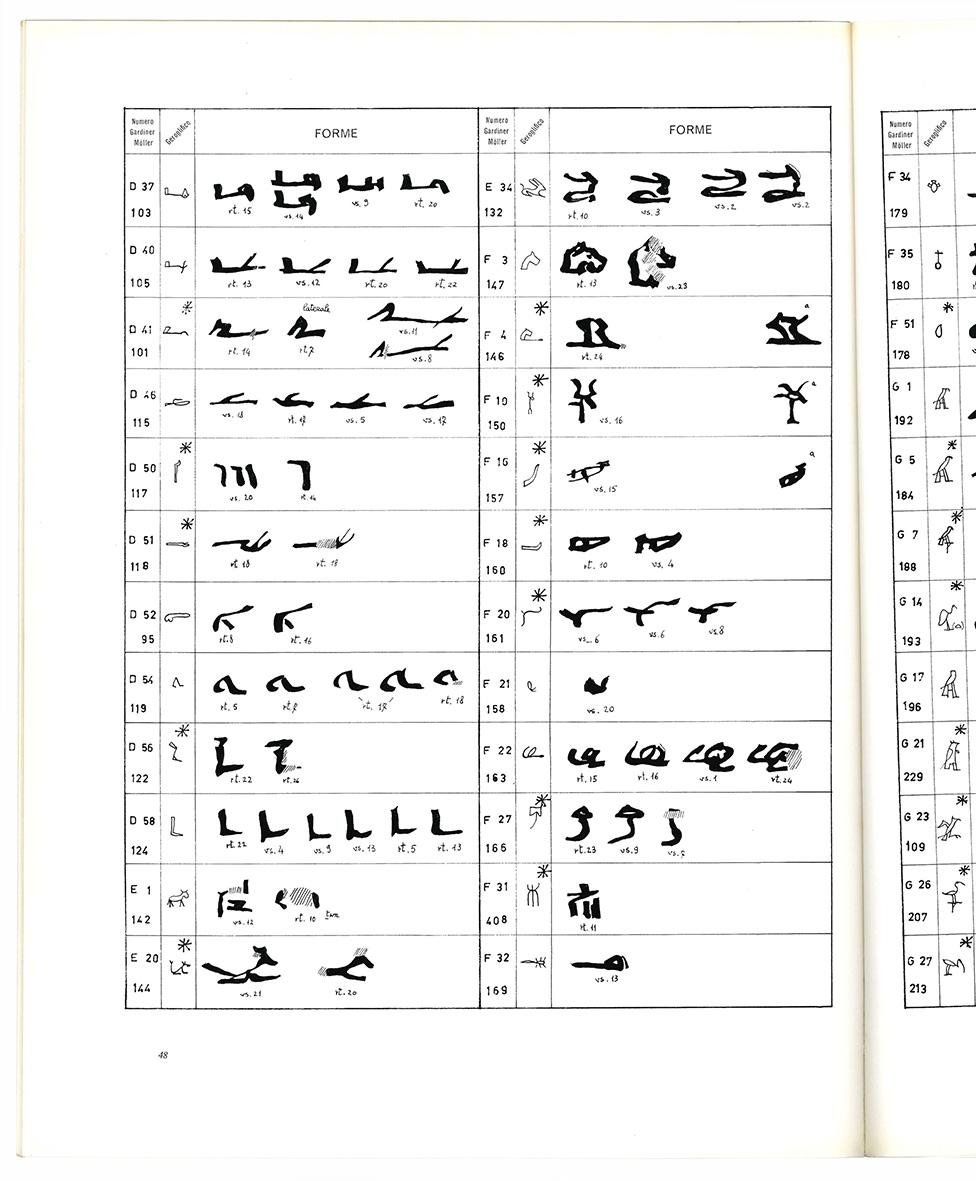 Numero
Gardiner
Möller
Geroglifico
FORME
D 37
103
rt. 15
vs. 14
vs. 9
rt. 20
D 40
105
rt. 13
vs. 12
rt. 20
rt. 22
D 41
101
rt. 14
laterale
rt. 7
vs. 11
vs. 8
D 46
115
vs. 13
rt. 17
vs. 5
vs. 17
D 50
117
vs. 20
rt. 14
D 51
118
rt. 18
rt. 18
D 52
95
rt. 8
rt. 16
D 54
119
rt. 5
rt. 17
rt. 18
D 56
122
rt. 22
rt. 26
D 58
124
rt. 22
vs. 4
vs. 9
vs. 13
rt. 5
rt. 13
E 1
142
vs. 12
rt. 10
E 20
144
vs. 21
rt. 20
Numero
Gardiner
Möller
Geroglifico
FORME
E 34
132
rt. 10
vs. 3
vs. 2
vs. 2
F 3
147
rt. 13
vs. 23
F 4
146
rt. 24
a
F 19
150
vs. 16
a
F 16
157
vs. 15
a
F 18
160
rt. 10
vs. 4
F 20
161
vs. 6
vs. 6
vs. 8
F 21
158
vs. 20
F 22
163
rt. 15
rt. 16
vs. 1
rt. 24
F 27
166
rt. 23
vs. 9
F 31
408
rt. 11
F 32
169
vs. 13
48
Numero
Gardiner
Möller
Geroglifico
F 34
179
F 35
180
F 51
178
G 1
192
G 5
184
G 7
188
G 14
193
G 17
196
G 21
229
G 23
109
G 26
207
G 27
213